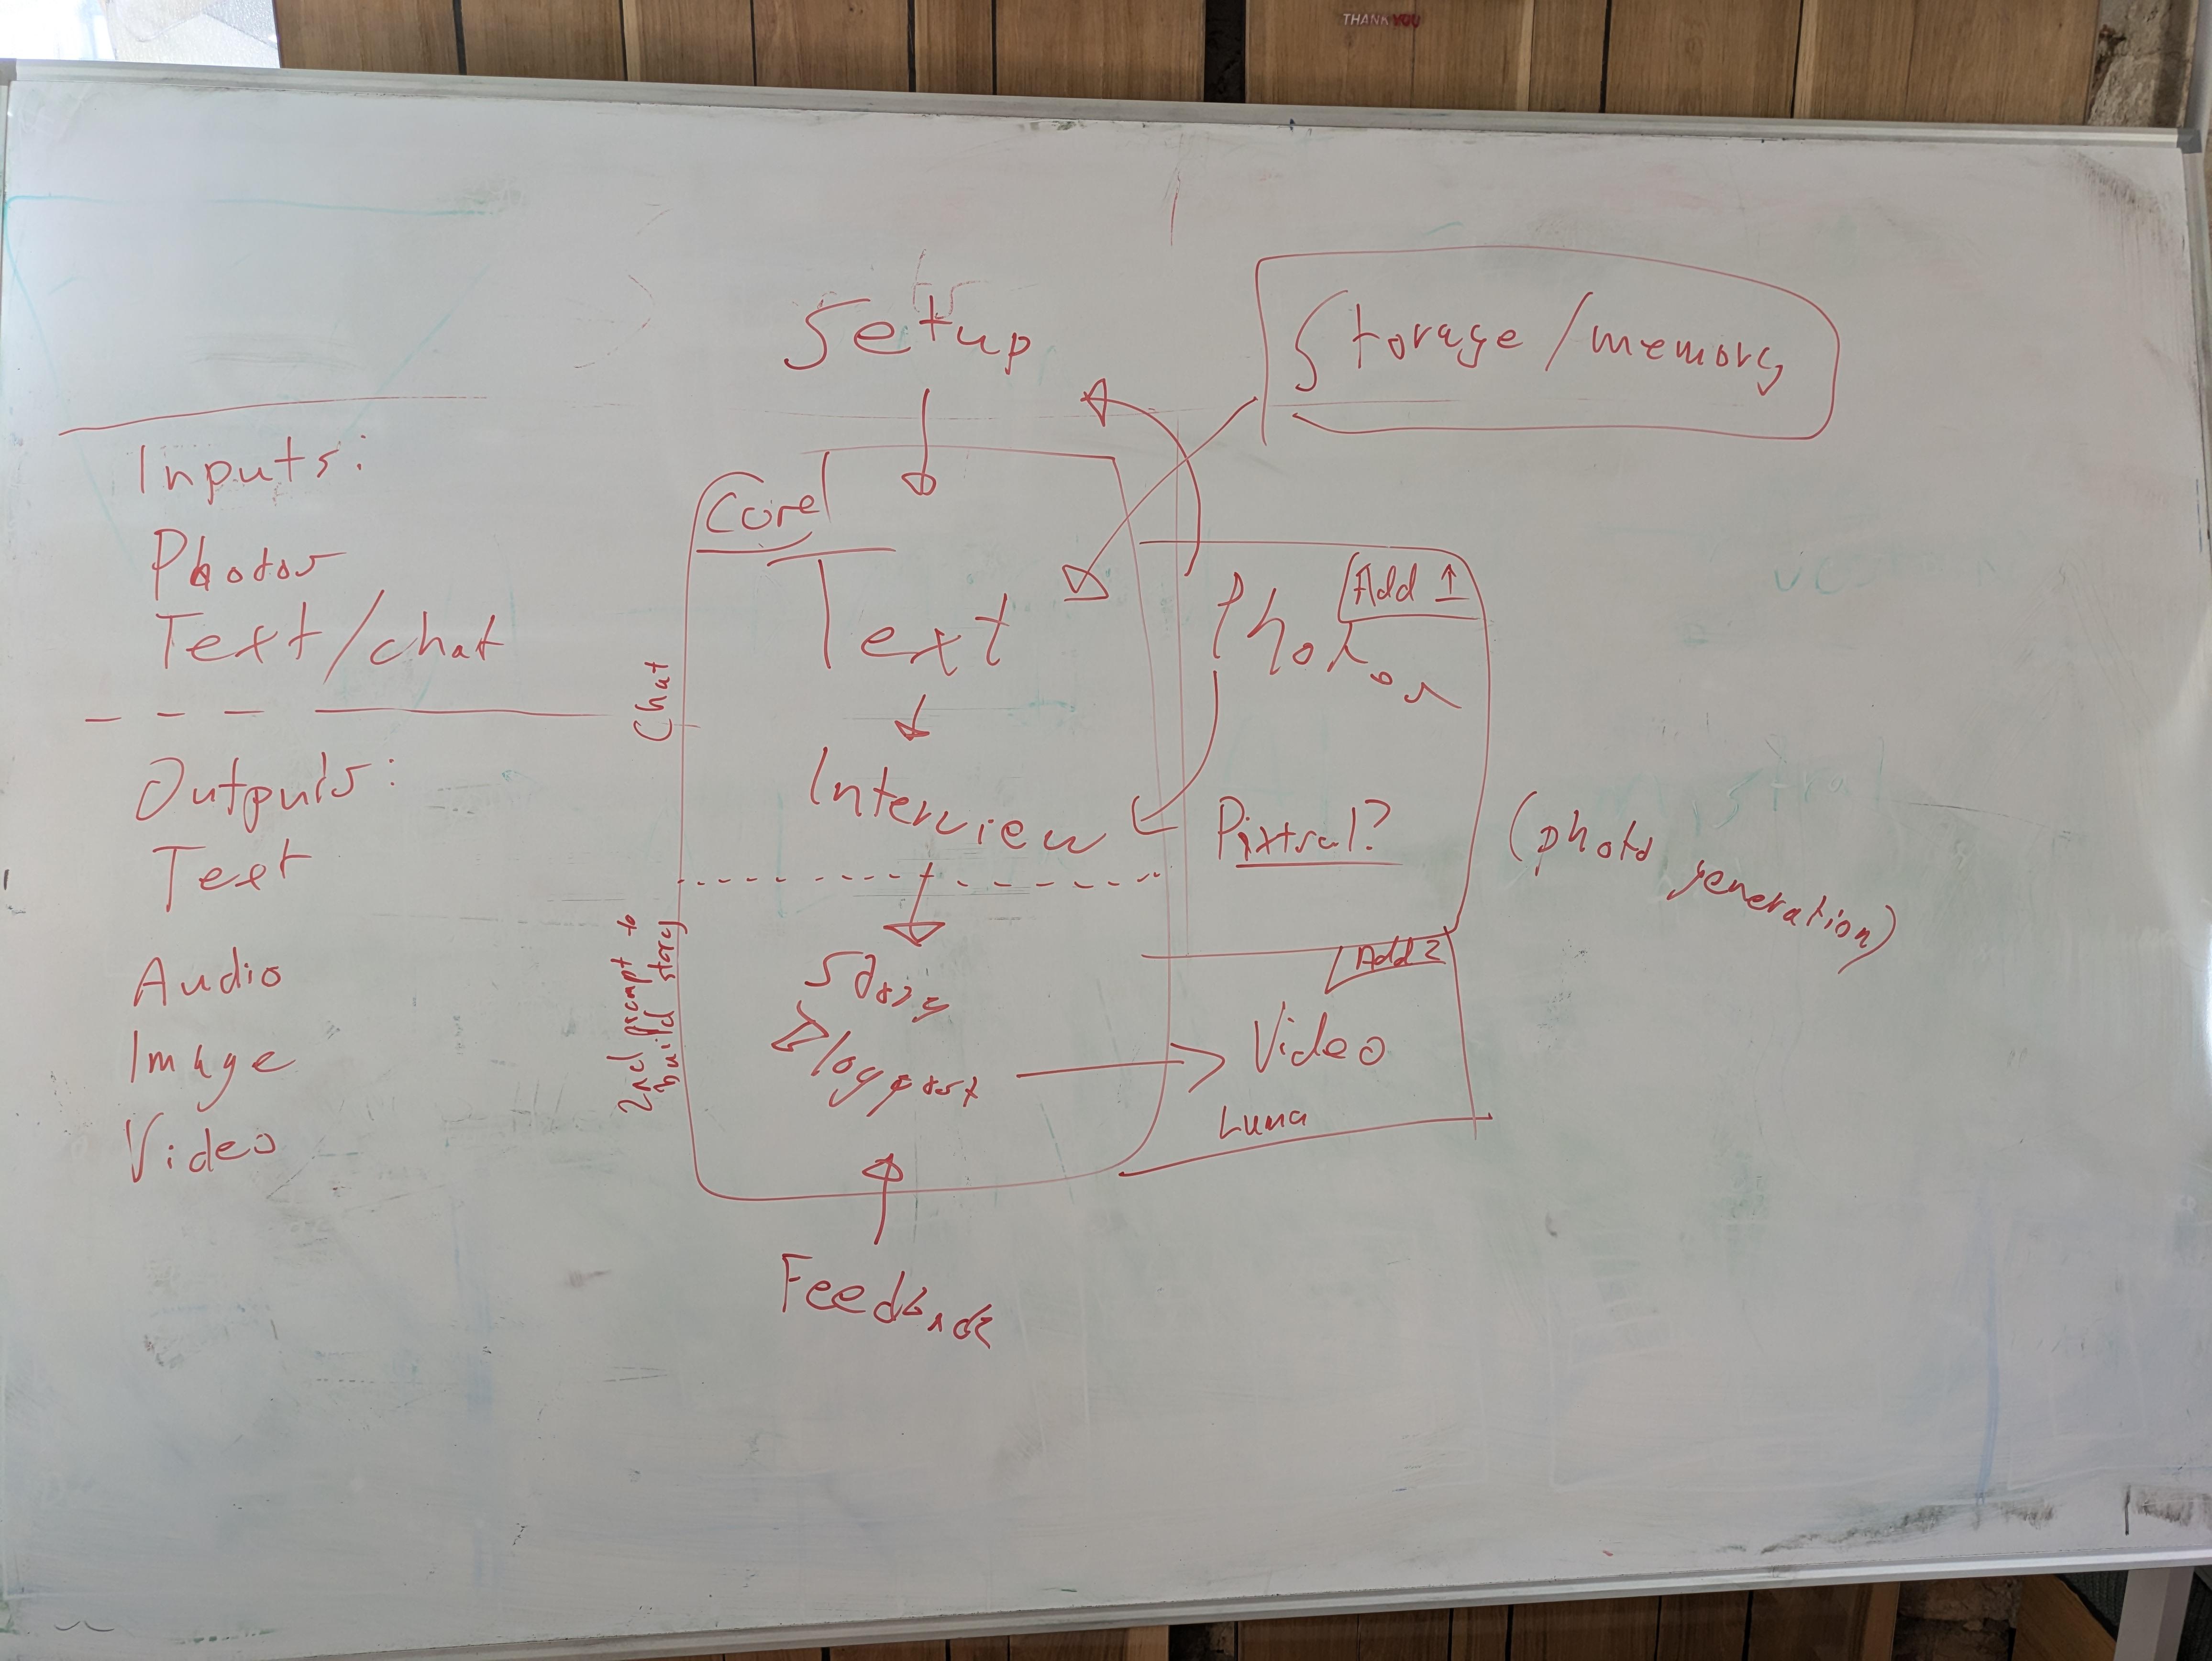 THANK YOU
Setup
Storage/memory
Inputs:
Photos
Text/chat
Outputs:
Text
Audio
Image
Video
Core
Text
Interview
Story
Blogpost
Feedback
Chat
2nd prompt to
build story
Add 1
Photos
Pixtral?
(photo generation)
Add 2
Video
Luma